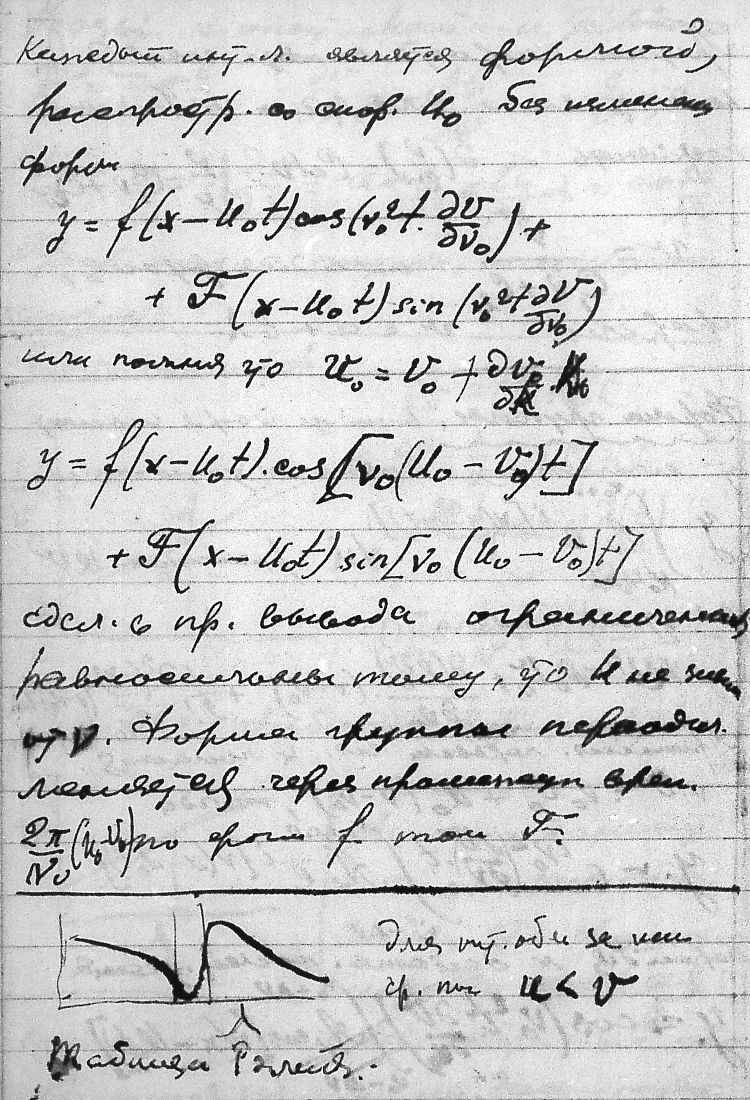 Каждый инт-л. является формой,
распростр. со скор. U₀ без изменения
форм
y = f(x – u₀t) cos(ν₀²t · ∂V/∂ν₀) +
+ F(x – u₀t) sin(ν₀²t ∂V/∂ν₀)
или помня что U₀ = V₀ + ∂V₀/∂
y = f(x – u₀t) · cos[ν₀(U₀ – V₀)t]
+ F(x – u₀t) sin[ν₀(u₀ – V₀)t]
сдел. в пр. вывода ограничения
равносильны тому, что U не
от ν. Форма группы периодич.
меняется через промежутки врем.
2π/ν₀ (u₀–V₀) то f. то F.
для
ср. u < v
Таблица Рэлея.